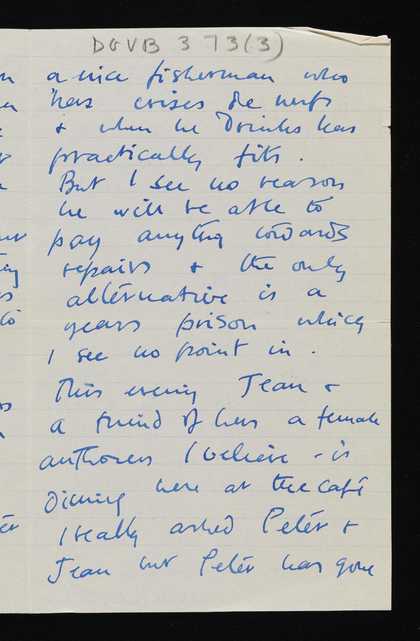 DGVB 373(3)
a nice fisherman who
has crises de nerfs
& when he drinks has
practically fits.
But I see no reason
he will be able to
pay anything towards
repairs & the only
alternative is a
years prison which
I see no point in.
This evening Jean &
a friend of hers a female
authoress I believe - is
dining here at the café
I really asked Peter &
Jean but Peter has gone